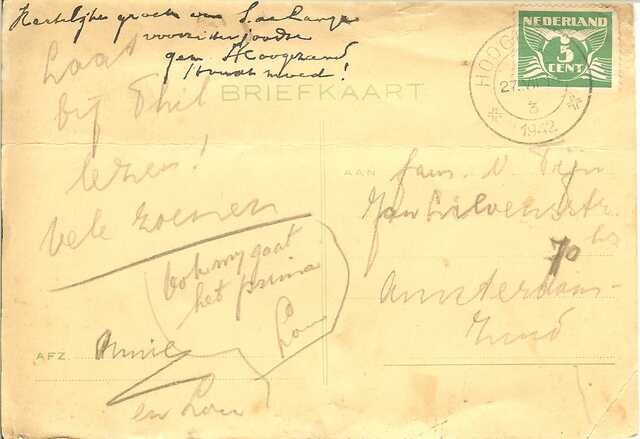 Hartelijke groeten van S. de Lange
voorzitter joodse
gem. Hoogezand
houdt moed!
Laat
bij Phil
lezen!
Vele zoenen
Ook my gaat
het prima
Lou
AFZ.
Annie
en Lou
BRIEFKAART
NEDERLAND
5
CENT
HOOG
27.VII
3
1942
AAN
fam. N. Tijn
Jan Lievensstr.
70 hs
Amsterdam-
Zuid